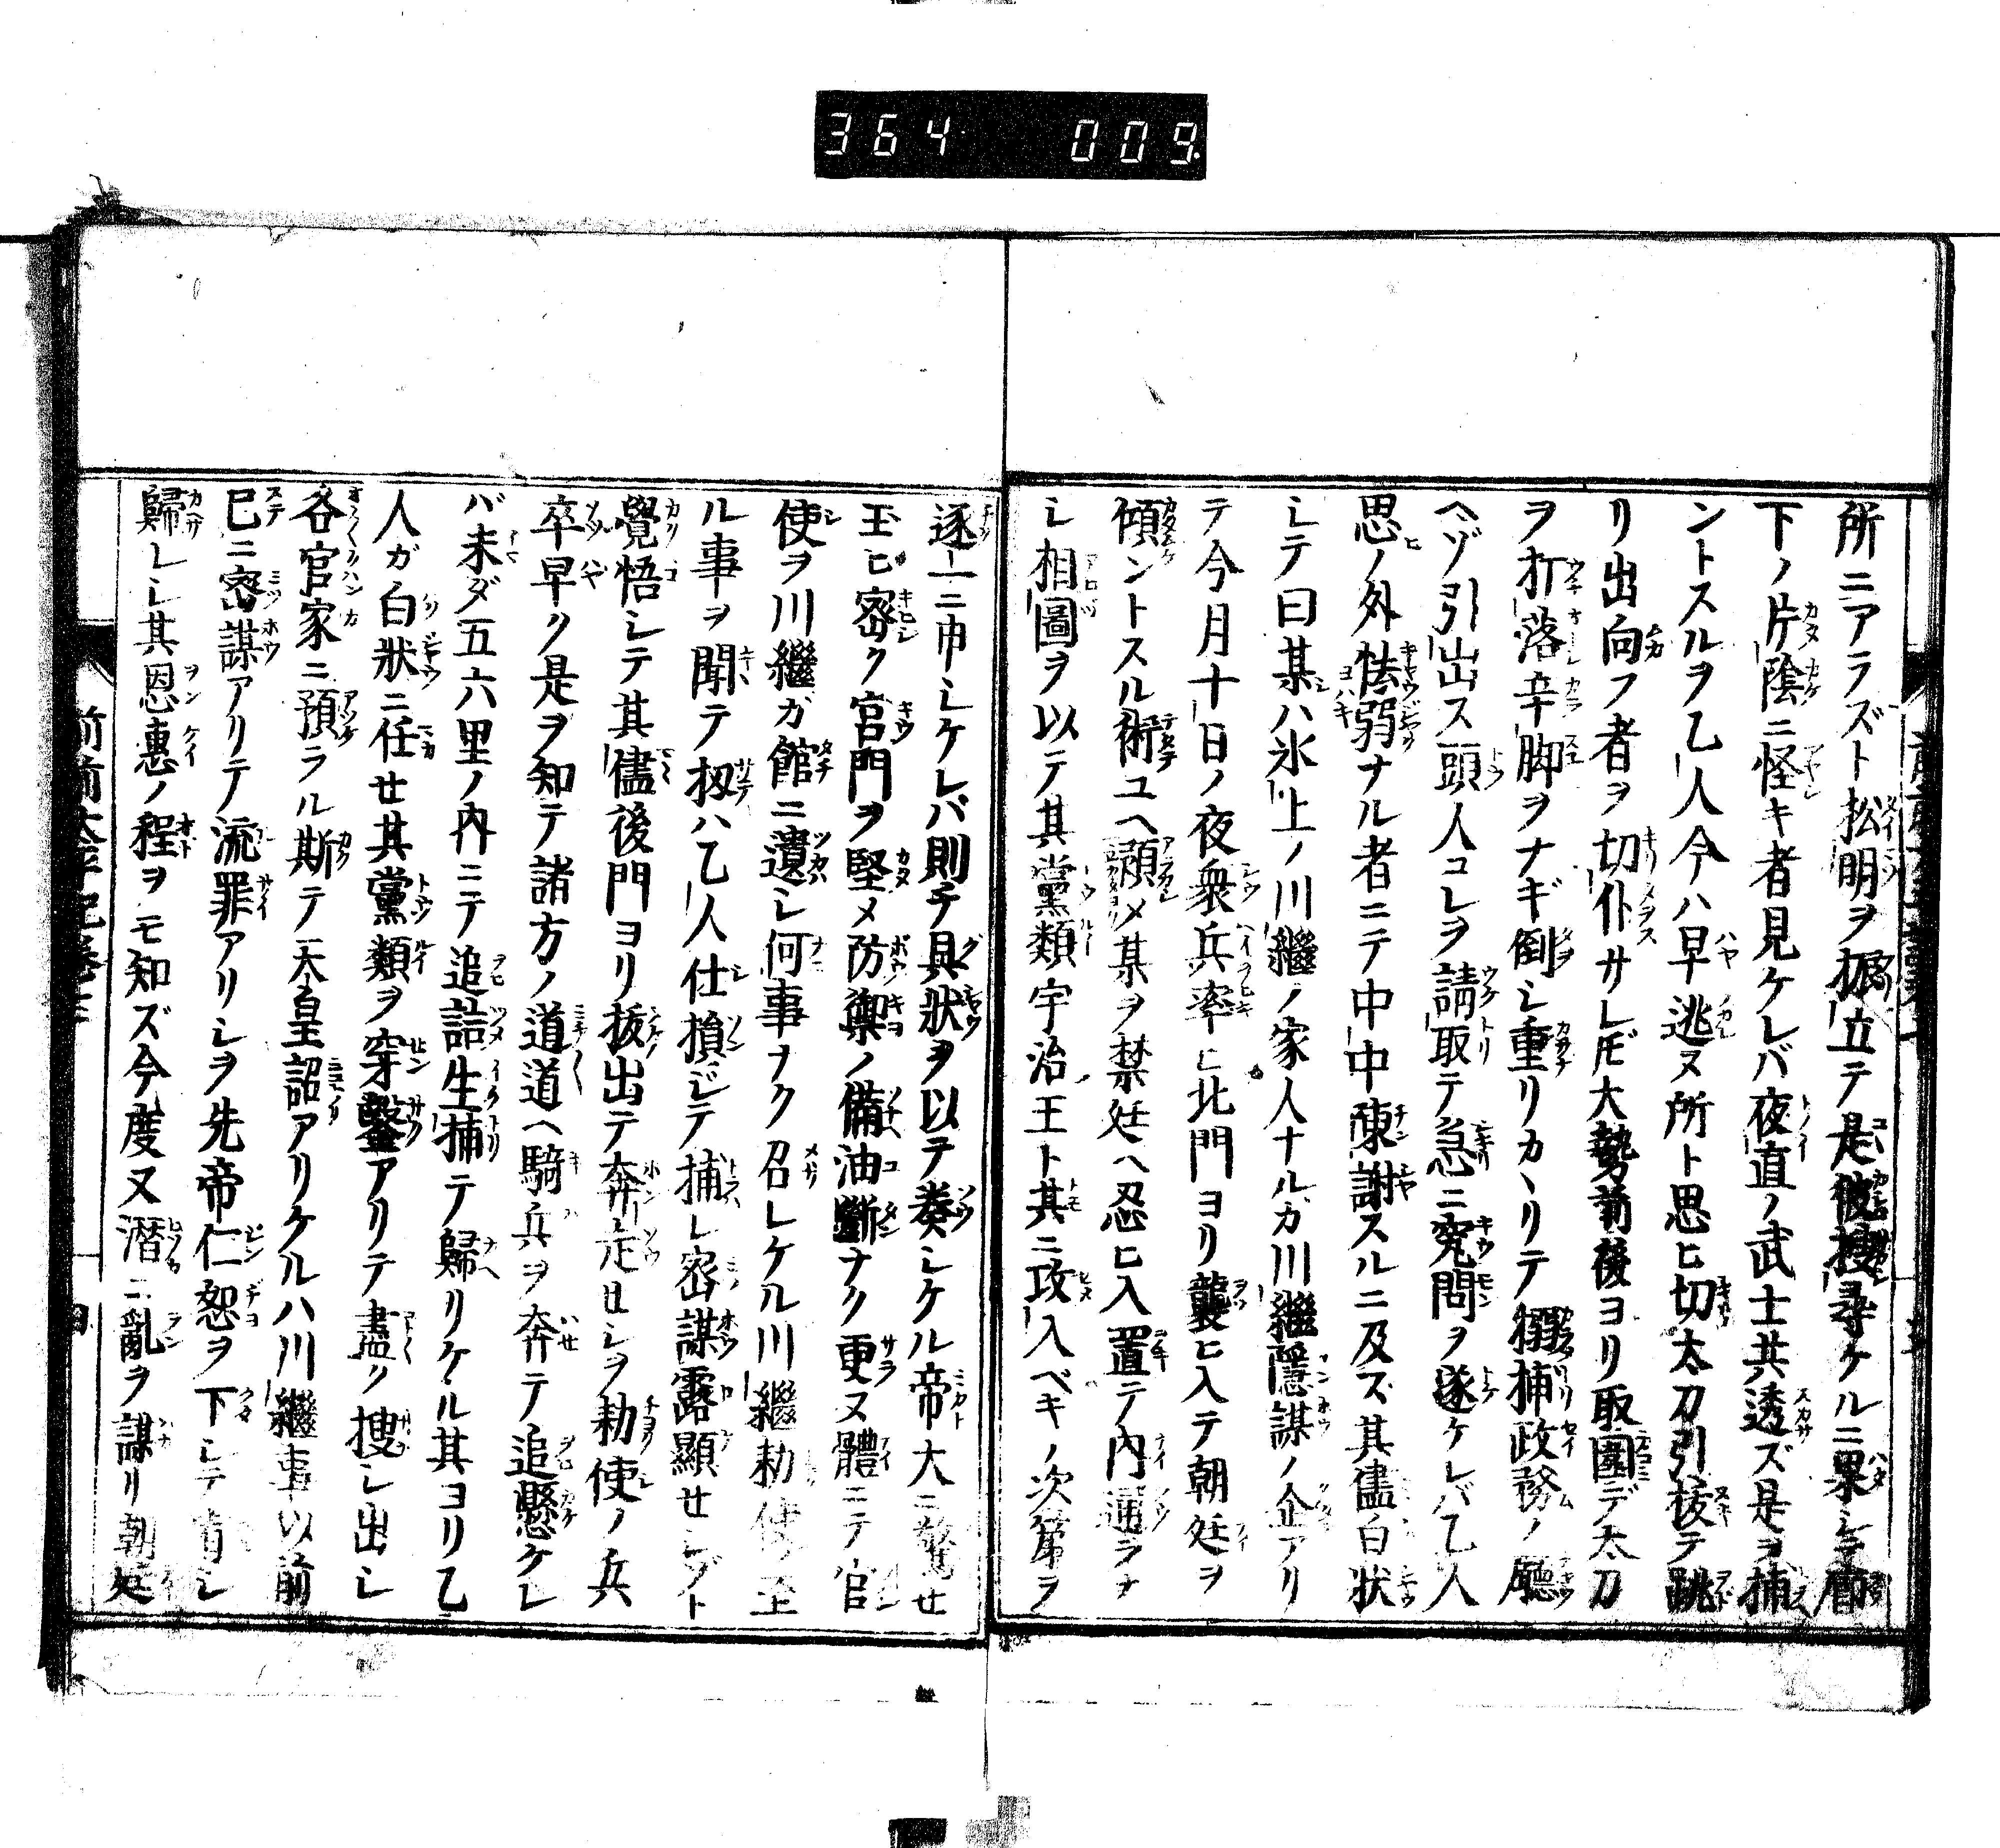 364 009
所ニアラズト松明ヲ振立テ是彼捜尋ケルニ果シテ廊
下ノ片陰ニ怪キ者見ケレバ夜直ノ武士共透ズ是ヲ捕
ントスルヲ乙人今ハ早逃ヌ所ト思ヒ切太刀引拔テ跳
リ出向フ者ヲ切仆サレドモ大勢前後ヨリ取圍デ太刀
ヲ打落辛脚ヲナギ倒シ重リカヽリテ搦捕政務ノ廳
ヘゾ引出ス頭人コレヲ請取テ急ニ究問ヲ遂ケレバ乙人
思ノ外怯弱ナル者ニテ中中陳謝スルニ及ズ其儘白状
シテ曰某ハ氷上ノ川繼ノ家人ナルカ川繼隱謀ノ企アリ
テ今月十日ノ夜衆兵率ヒ北門ヨリ襲ヒ入テ朝廷ヲ
傾ントスル術ユヘ預メ某ヲ禁廷ヘ忍ヒ入置テ内通ヲナ
シ相圖ヲ以テ其黨類宇治王ト其ニ攻入ベキノ次第ヲ
逐一ニ申シケレバ則チ具狀ヲ以テ奏シケル帝大ニ驚セ
玉ヒ密ク官門ヲ堅メ防禦ノ備油斷ナク更ヌ體ニテ官
使ヲ川繼ガ館ニ遣シ何事ナク召シケル川繼勅使ノ至
ル事ヲ聞テ扨ハ乙人仕損ジテ捕レ密謀露顯せシゾト
覺悟シテ其儘後門ヨリ拔出テ奔走せシヲ勅使ノ兵
卒早ク是ヲ知テ諸方ノ道道ヘ騎兵ヲ奔テ追懸ケレ
バ未ダ五六里ノ内ニテ追詰生捕テ歸リケル其ヨリ乙
人ガ白狀ニ任せ其黨類ヲ穿鑿アリテ盡ク捜シ出シ
各官家ニ預ラル斯テ天皇詔アリケルハ川繼事以前
已ニ密謀アリテ流罪アリシヲ先帝仁恕ヲ下シテ宥シ
歸レシ其恩惠ノ程ヲモ知ズ今度又潛ニ亂ヲ謀リ朝廷
前前太平記卷三